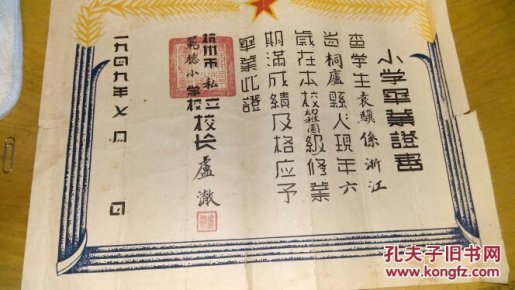 小学畢業證書
查学生袁驥係浙江
省桐廬縣人現年六
歲在本校幼稚園級修業
期滿成績及格应予
畢業此證
杭州市私立
範模小学校校长盧澈
一九四九年七月 日
孔夫子旧书网
www.kongfz.com